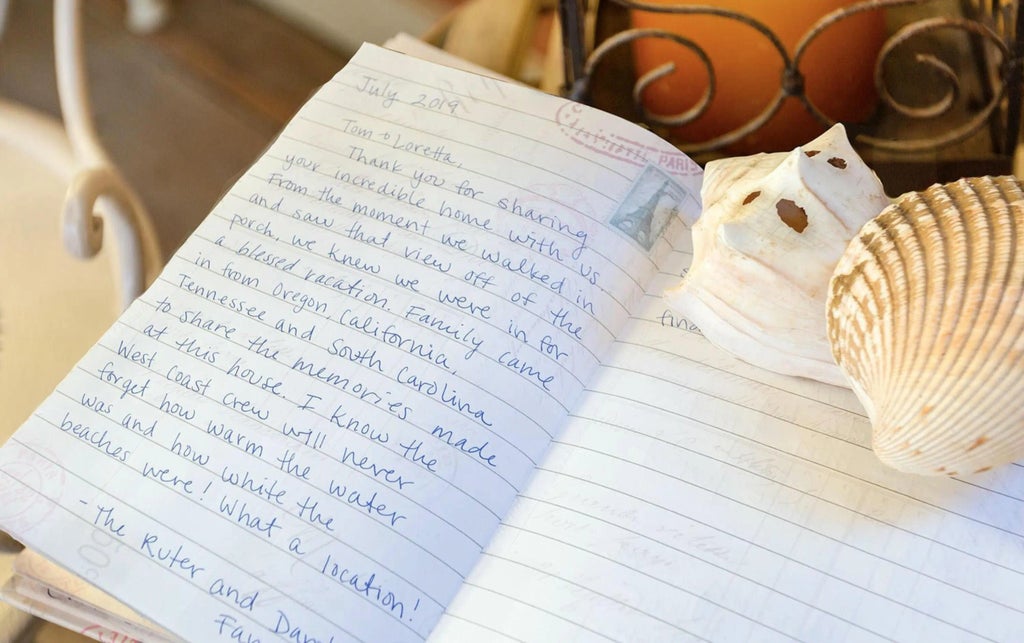 July 2019
Tom + Loretta,
Thank you for sharing
your incredible home with us
From the moment we walked in
and saw that view off of the
porch, we knew we were in for
a blessed vacation. Family came
in from Oregon, California,
Tennessee and South Carolina
to share the memories made
at this house. I know the
West Coast crew will never
forget how warm the water
was and how white the
beaches were! What a location!
- The Ruter and
PARIS